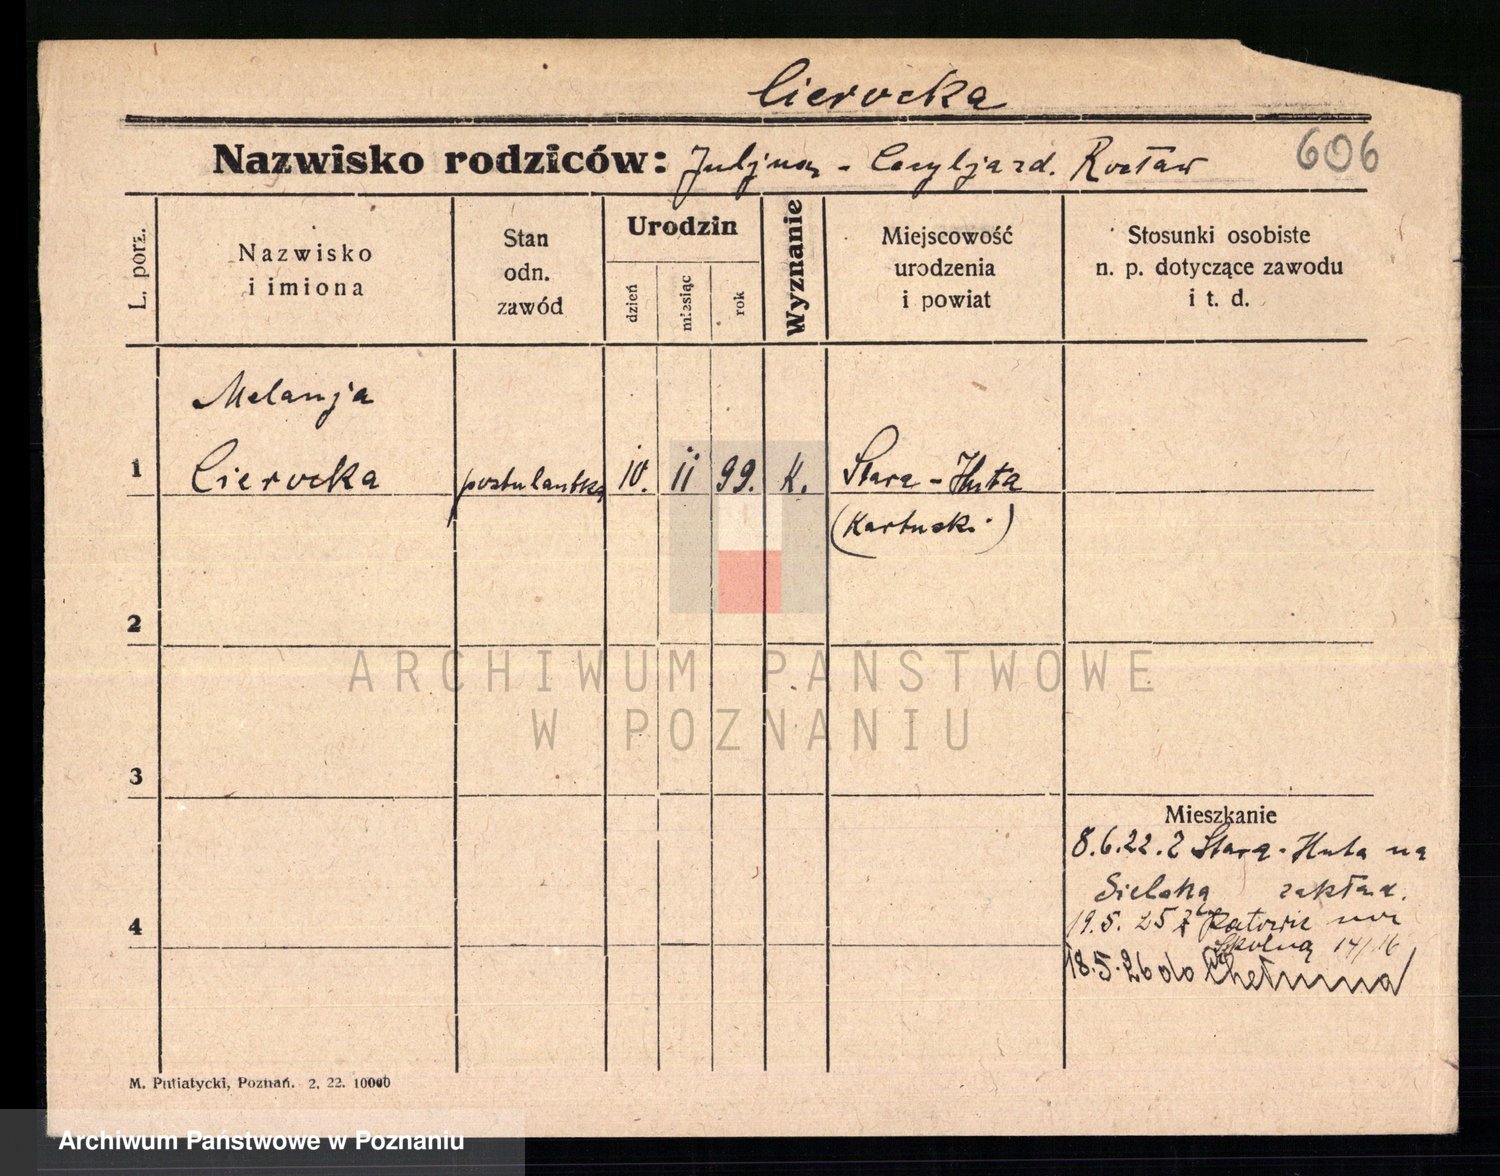 Cierocka
Nazwisko rodziców: Juljusz - Cecylja zd.
606
L. porz.
Nazwisko
i imiona
Stan
odn.
zawód
Urodzin
dzień
miesiąc
rok
Wyznanie
Miejscowość
urodzenia
i powiat
Stosunki osobiste
n. p. dotyczące zawodu
i t. d.
Melanja
1 Cierocka postulantka 10. 11 99. K. Stara - Huta
(Kartuski)
2
ARCHIWUM PAŃSTWOWE
W POZNANIU
3
Mieszkanie
8.6.22. z Stara - Huta na
Sielska zakład.
4
19.5.25 z Katowic
Szkolną 14/16
18.5.26 do Chełmna
M. Putiatycki, Poznań. 2. 22. 10000
Archiwum Państwowe w Poznaniu